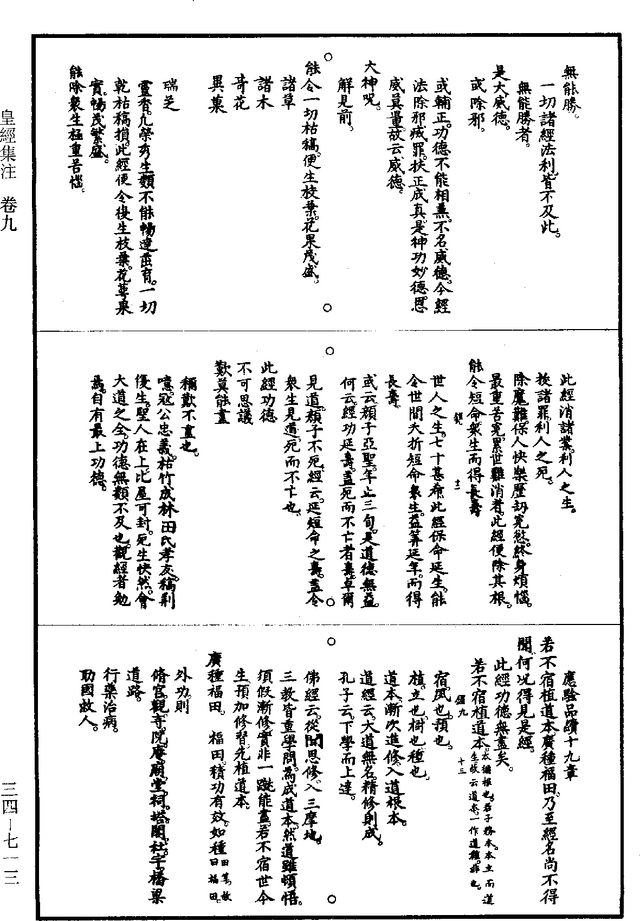 皇經集注　卷九
無能勝。
一切諸經法利皆不及此。
無能勝者。
是大威德。
或除邪。
或輔正。功德不能相兼。不名威德。今經
法除邪滅罪。扶正成真。是神功妙德。恩
威莫量。故云威德。
大神呪。
解見前。
能令一切枯槁。便生枝葉。花果茂盛。
諸草
諸木
奇花
異菓
瑞芝
靈春。凡榮夯生類。不能暢達茁育。一切
乾枯槁損。此經使令復生枝葉。花萼果
實。暢茂繁盛。
能除眾生極重苦惱。
此經消諸業。利人之生。
拔諸罪。利人之死。
除魔難。保人快樂。歷劫冤愆。終身煩惱。
最重苦冤。累世難消者。此經便除其根。
能令短命眾生。而得長壽。
世人之生。七十甚希。此經保命延生。能
令世間夭折短命眾生。益筭延年。而得
長壽。
或云。顏子亞聖。年止三旬。是道德無益。
何云經功延壽。蓋死而不亡者壽。卓爾
見道。顏子不死。經云。延短命之壽。蓋令
眾生見道。死而不亡也。
此經功德
不可思議
歎莫能盡
稱歎不盡也。
噫。寇公忠義。枯竹成林。田氏孝友。槁荊
復生。聖人在上。比屋可封。死生快然。會
大道之全。功德無顯不及也。觀經者勉
焉。自有最上功德。
應驗品續十九章
若不宿植道本。廣種福田。乃至經名尚不得
聞。何况得見是經。
此經功德無盡矣。
若不宿植道本。
宿。夙也。預也。
植。立也。樹也。種也。
道本。漸次進修。入道根本。
道經云。大道無名。精修則成。
孔子云。下學而上達。
佛經云。從聞思修。入三摩地。
三教皆重學問。為成道本。然道雖頓悟。
須假漸修。實非一蹴能盡。若不宿世今
生預加修習。先植道本。
廣種福田。　福田。積功有效。如種田苗。故曰福田。
外功則
脩宮觀寺院。庵廟堂祠。塔閣社宇。橋梁
道路。
行藥治病。
助國救人。
三四—七一三